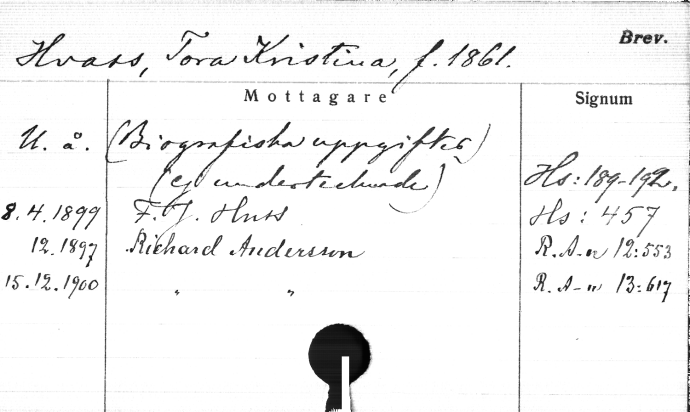 Brev.
Hvass, Tora Kristina, f. 1861.
Mottagare Signum
U. å. (Biografiska uppgifter)
(ej undertecknade) Hs: 189-192.
8.4.1899 F. J. Huss Hs: 457
12.1897 Richard Andersson R. A-n 12:553
15.12.1900 " " R. A-n 13:617